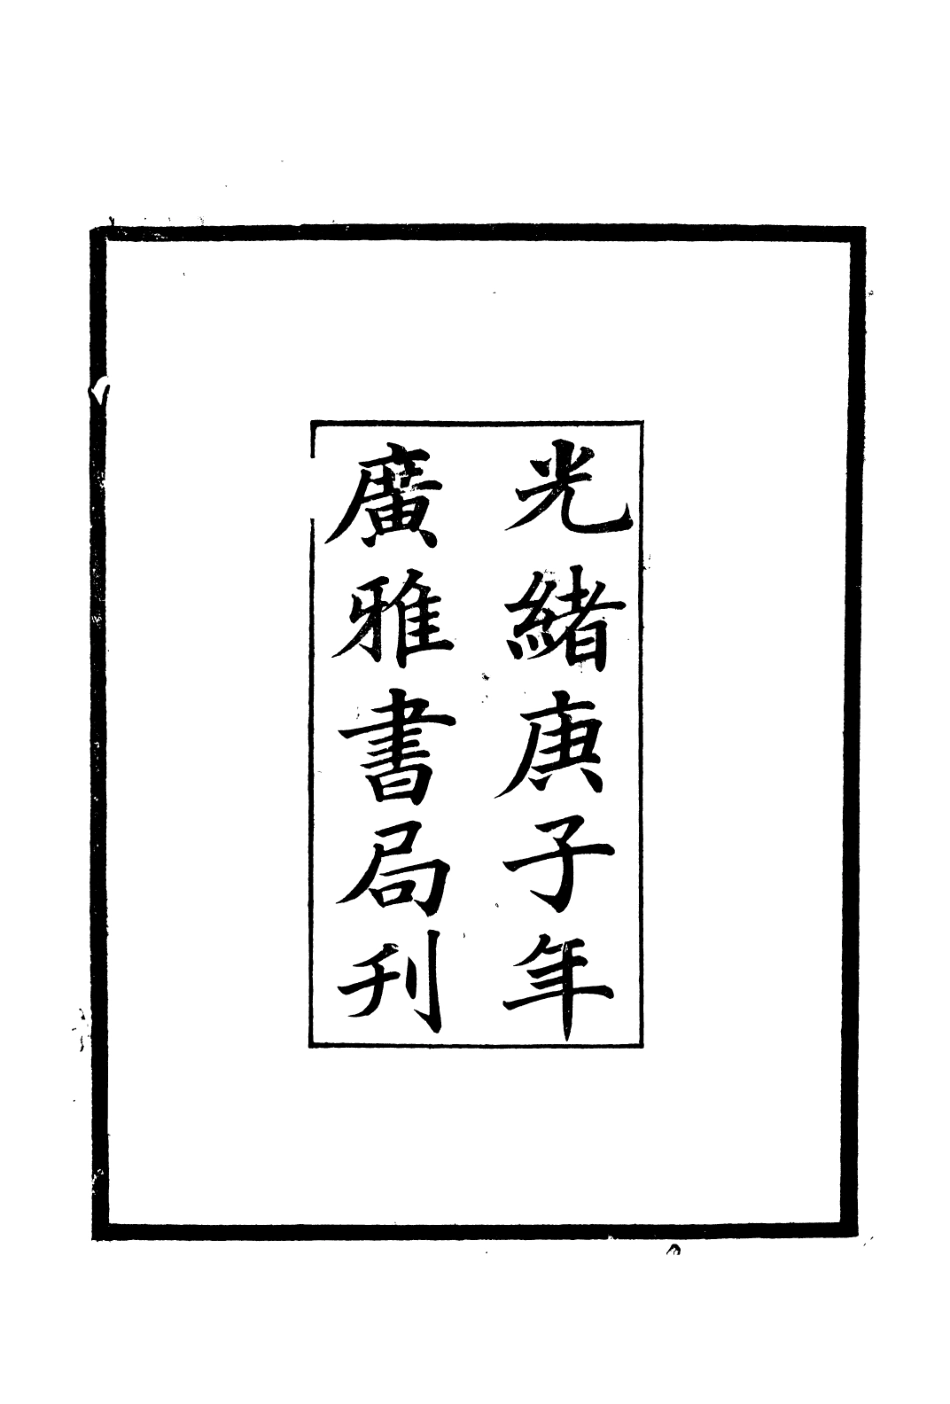 光緒庚子年
廣雅書局刊